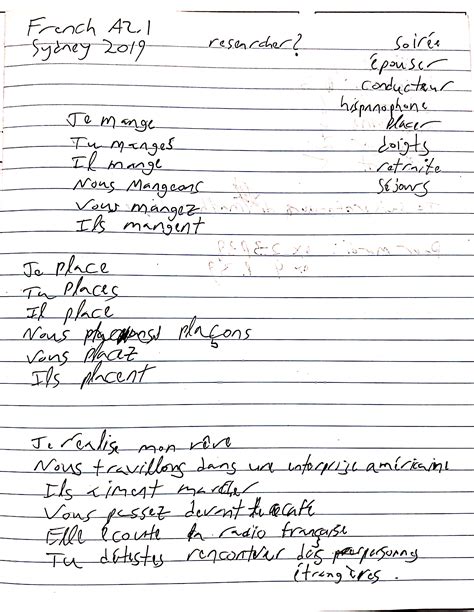 French A2.1
Sydney 2019
researcher?
soirée
épouser
conducteur
hispanophone
placer
doigts
retraite
séjours
Je mange
Tu manges
Il mange
Nous Mangeons
Vous mangez
Ils mangent
Je place
Tu places
Il place
Nous plaçons
Vous placez
Ils placent
Je réalise mon rêve
Nous travillons dans une enterprise américaine
Ils aiment marcher
Vous passez devant le café
Elle écoute la radio française
Tu détestes rencontrer des personnes
étrangères.